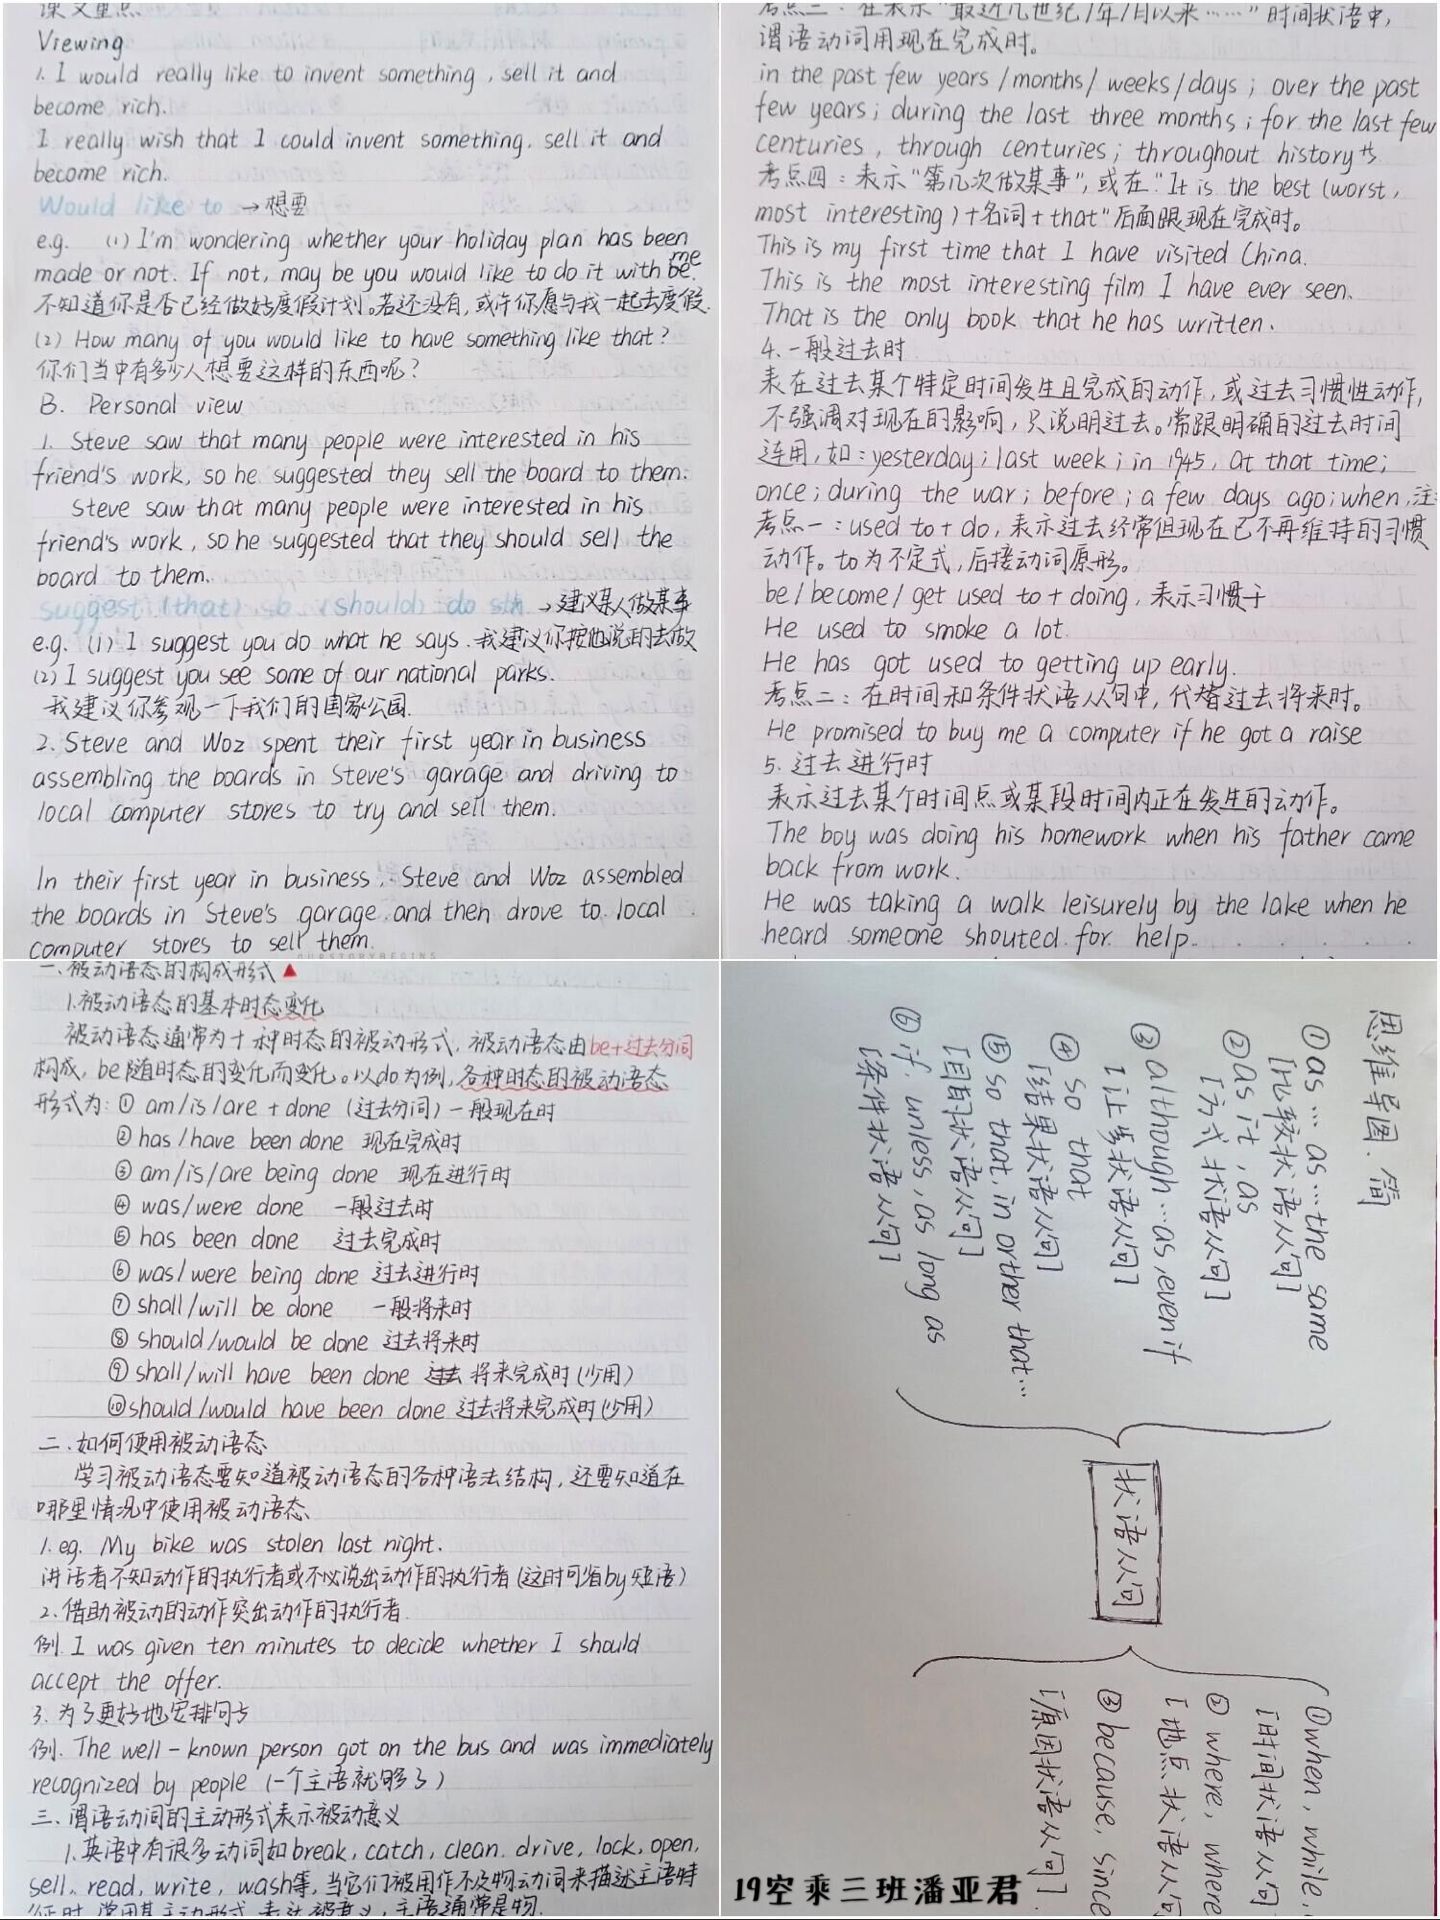 课文重点
Viewing
1. I would really like to invent something, sell it and
become rich.
I really wish that I could invent something. sell it and
become rich.
Would like to → 想要
e.g. (1) I'm wondering whether your holiday plan has been
made or not. If not, may be you would like to do it with be. me
不知道你是否已经做好度假计划。若还没有,或许你愿与我一起去度假.
(2) How many of you would like to have something like that?
你们当中有多少人想要这样的东西呢?
B. Personal view
1. Steve saw that many people were interested in his
friend's work, so he suggested they sell the board to them.
Steve saw that many people were interested in his
friend's work, so he suggested that they should sell the
board to them.
suggest (that) sb (should) do sth → 建议某人做某事
e.g. (1) I suggest you do what he says. 我建议你按他说的去做
(2) I suggest you see some of our national parks.
我建议你参观一下我们的国家公园.
2. Steve and Woz spent their first year in business
assembling the boards in Steve's garage and driving to
local computer stores to try and sell them.
In their first year in business, Steve and Woz assembled
the boards in Steve's garage and then drove to local
computer stores to sell them.
考点三:在表示"最近几世纪/年/月以来……"时间状语中,
谓语动词用现在完成时。
in the past few years/months/weeks/days; over the past
few years; during the last three months; for the last few
centuries, through centuries; throughout history 等
考点四:表示"第几次做某事",或在"It is the best (worst,
most interesting)+名词+that"后面跟现在完成时。
This is my first time that I have visited China.
This is the most interesting film I have ever seen.
That is the only book that he has written.
4. 一般过去时
表在过去某个特定时间发生且完成的动作,或过去习惯性动作,
不强调对现在的影响,只说明过去。常跟明确的过去时间
连用,如:yesterday; last week; in 1945, at that time;
once; during the war; before; a few days ago; when, 注:
考点一:used to + do, 表示过去经常但现在已不再维持的习惯
动作。to为不定式,后接动词原形。
be/become/get used to + doing, 表示习惯于
He used to smoke a lot.
He has got used to getting up early.
考点二:在时间和条件状语从句中,代替过去将来时。
He promised to buy me a computer if he got a raise
5. 过去进行时
表示过去某个时间点或某段时间内正在发生的动作。
The boy was doing his homework when his father came
back from work.
He was taking a walk leisurely by the lake when he
heard someone shouted for help.
一.被动语态的构成形式▲
1.被动语态的基本时态变化
被动语态通常为十种时态的被动形式,被动语态由be+过去分词
构成, be随时态的变化而变化。以do为例,各种时态的被动语态
形式为: ① am/is/are + done (过去分词) 一般现在时
② has/have been done 现在完成时
③ am/is/are being done 现在进行时
④ was/were done 一般过去时
⑤ has been done 过去完成时
⑥ was/were being done 过去进行时
⑦ shall/will be done 一般将来时
⑧ should/would be done 过去将来时
⑨ shall/will have been done 过去 将来完成时(少用)
⑩ should/would have been done 过去将来完成时(少用)
二.如何使用被动语态
学习被动语态要知道被动语态的各种语法结构,还要知道在
哪里情况中使用被动语态
1. eg. My bike was stolen last night.
讲话者不知动作的执行者或不必说出动作的执行者(这时可省by短语)
2.借助被动的动作突出动作的执行者.
例. I was given ten minutes to decide whether I should
accept the offer.
3.为了更好地安排句子
例. The well-known person got on the bus and was immediately
recognized by people (一个主语就够了)
三.谓语动词的主动形式表示被动意义
1.英语中有很多动词如break, catch, clean. drive, lock, open,
sell, read, write, wash等,当它们被用作不及物动词来描述主语特
征时,常用其主动形式表达被意义,主语通常是物.
思维导图.简
①as… as…the same
[比较状语从句]
②as if, as
[方式状语从句]
③although…as,even if
[让步状语从句]
④ so that
[结果状语从句]
⑤so that, in orther that…
[目的状语从句]
⑥if. unless, as long as
[条件状语从句]
状语从句
①when, while,
[时间状语从句
②where, where
[地点状语从句
③because, since
[原因状语从句].
19空乘三班潘亚君